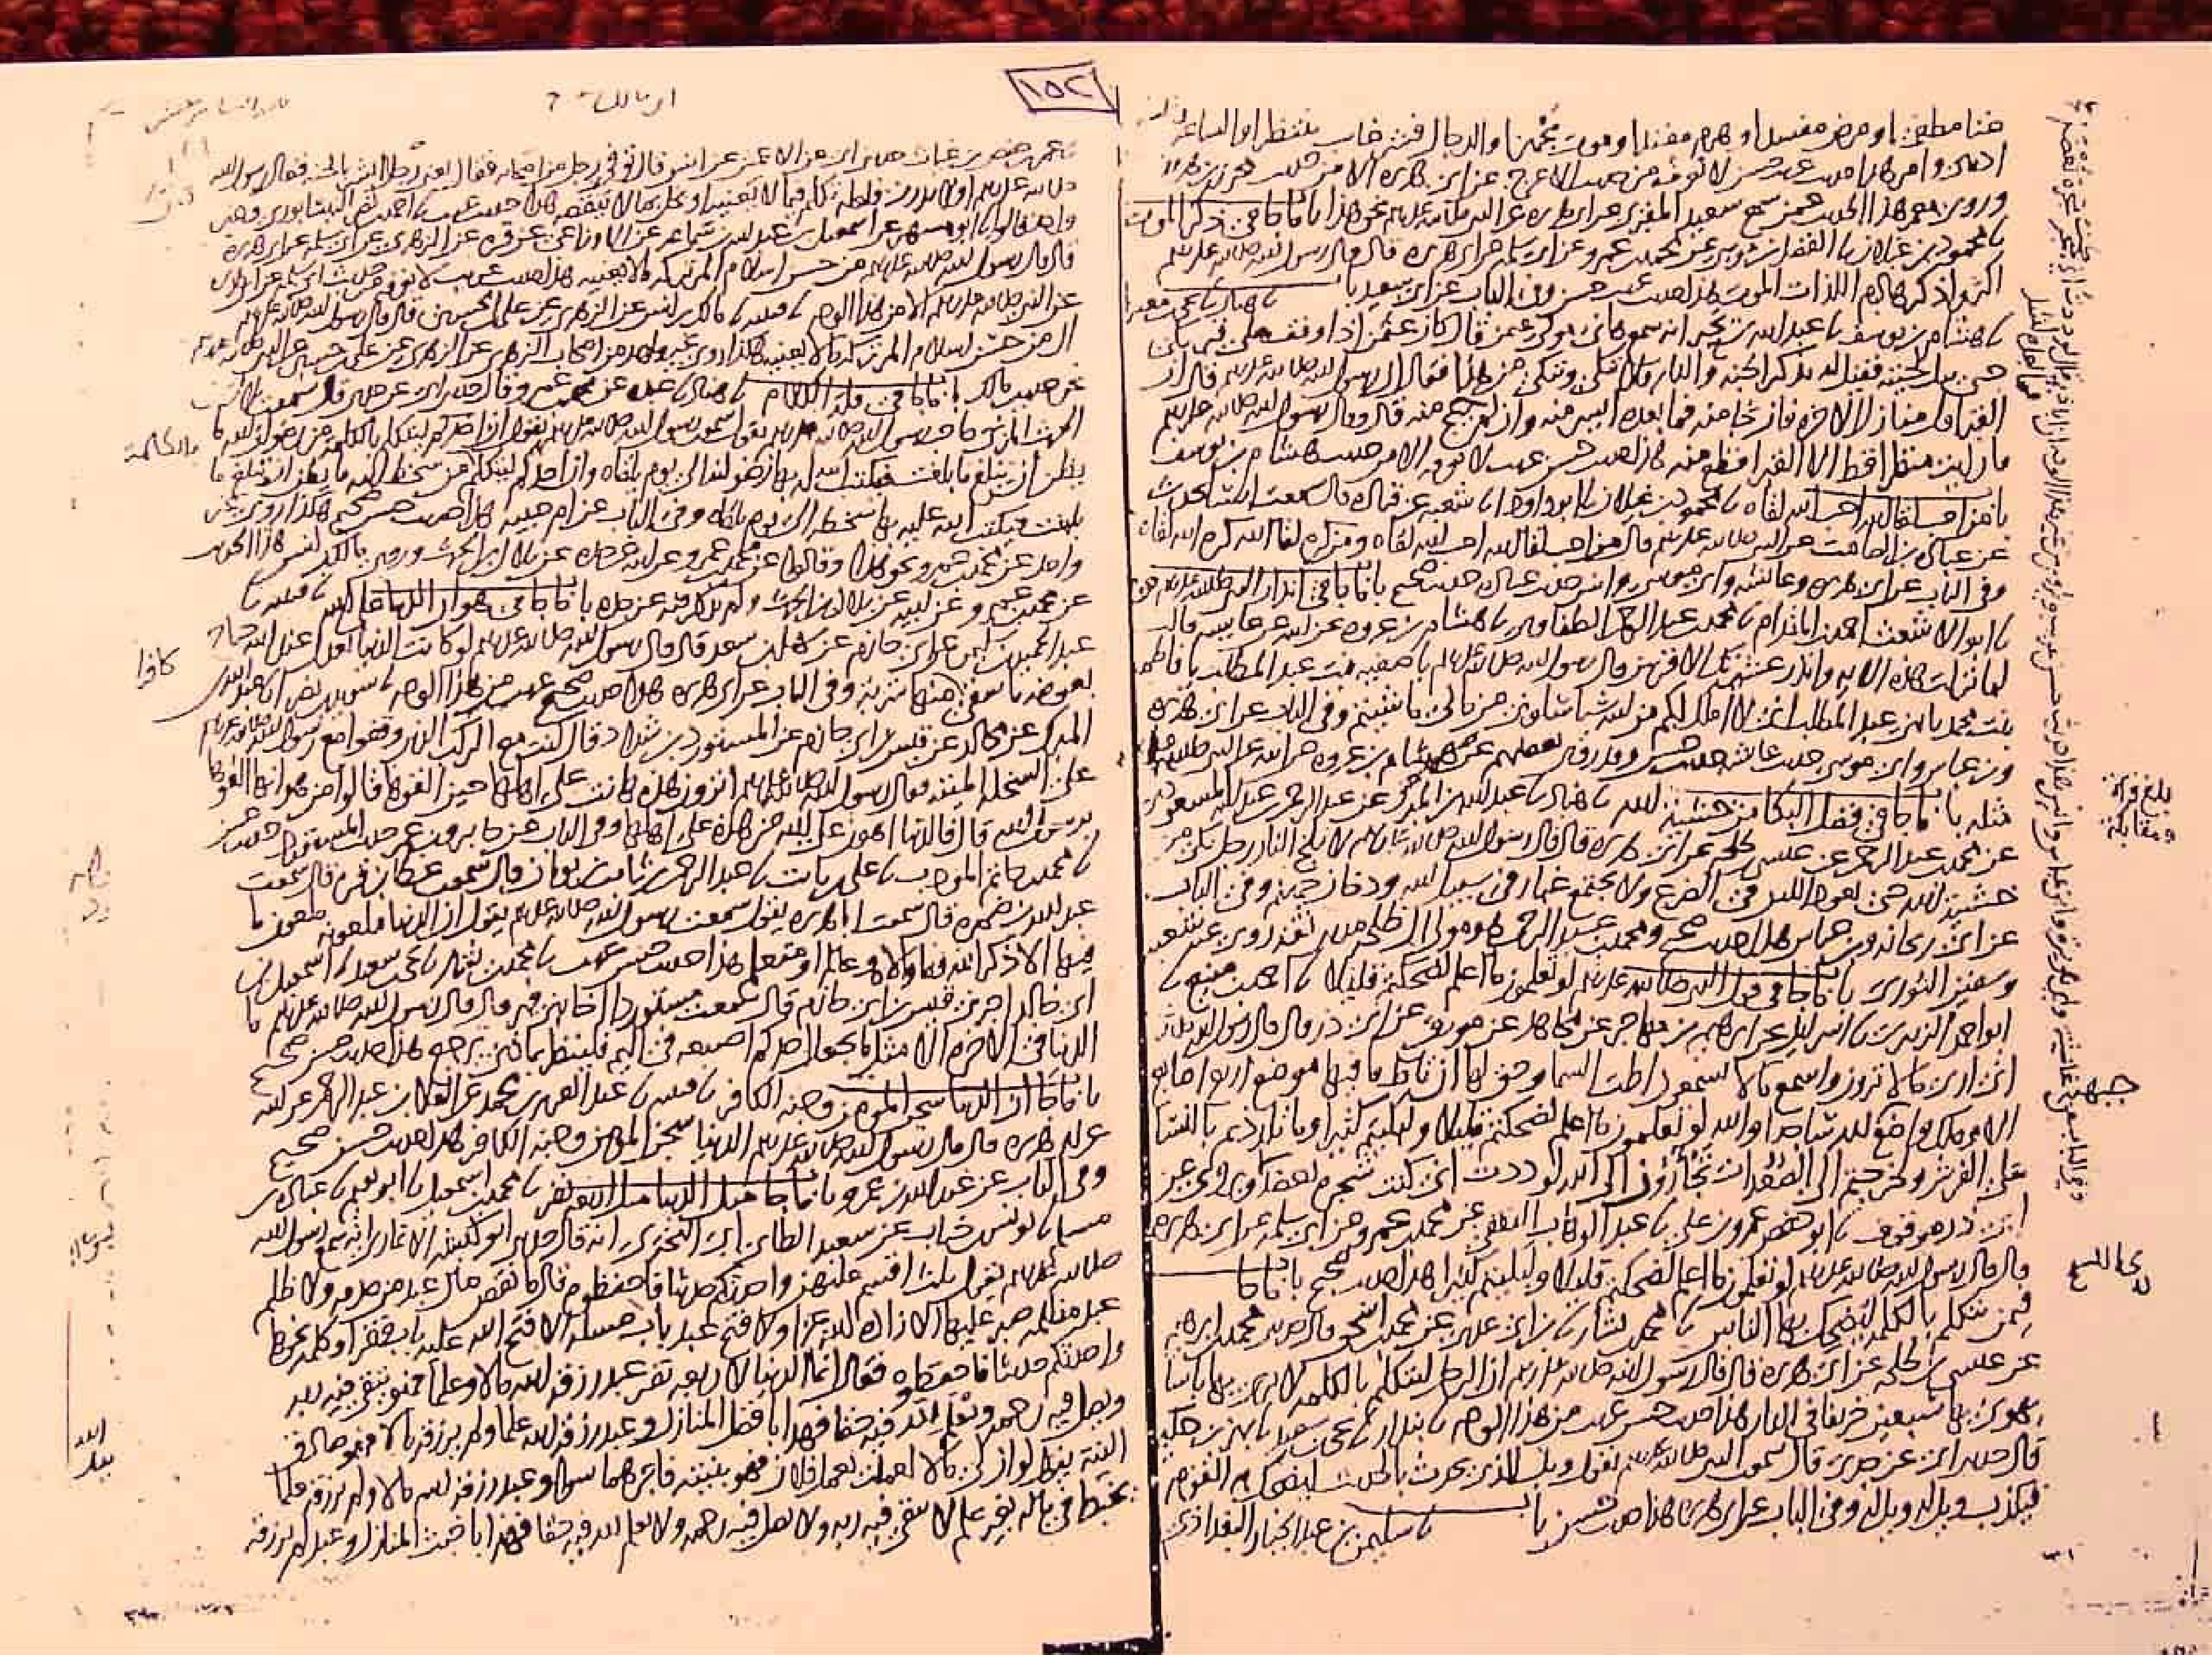 غنا مطغيا او مرض مفسدا او هرم مفندا او موت مجهزا والدجال فشر غائب ينتظر او الساعه
ادهى وامر هذا حديث غريب حسن لا نعرفه من حديث الاعرج عن ابى هريره الا من حديث محرز بن هارون
وروى معمر هذا الحديث عمن سمع سعيد المقبرى عن ابى هريره عن النبى صلى الله عليه نحو هذا باب ما جا فى ذكر الموت
نا محمود بن غيلان نا الفضل بن موسى عن محمد بن عمرو عن ابى سلمه عن ابى هريره قال قال رسول الله صلى الله عليه وسلم
اكثروا ذكر هاذم اللذات الموت هذا حديث غريب حسن وفى الباب عن ابى سعيد باب نا هناد نا يحيى بن معين
نا هشام بن يوسف نا عبد الله بن بحير انه سمع هانى مولى عثمن قال كان عثمن اذا وقف على قبر بكى
حتى يبل لحيته فقيل له تذكر الجنه والنار فلا تبكى وتبكى من هذا فقال ان رسول الله صلى الله عليه وسلم قال ان
القبر اول منازل الاخره فان نجا منه فما بعده ايسر منه وان لم ينج منه قال وقال رسول الله صلى الله عليه وسلم
ما رايت منظرا قط الا القبر افظع منه هذا حديث حسن غريب لا نعرفه الا من حديث هشام بن يوسف
باب من احب لقا الله احب الله لقاه نا محمود بن غيلان نا ابو داود نا شعبه عن قتاده قال سمعت انسا يحدث
عن عباده بن الصامت عن النبى صلى الله عليه وسلم قال من احب لقا الله احب الله لقاه ومن كره لقا الله كره الله لقاه
وفى الباب عن ابى هريره وعائشه وابى موسى وانس حديث عباده حديث صحيح باب ما جا فى انذار النبى صلى الله عليه وسلم قومه
نا ابو الاشعث احمد بن المقدام نا محمد بن عبد الرحمن الطفاوى نا هشام بن عروه عن ابيه عن عايشه قالت
لما نزلت هذه الايه وانذر عشيرتك الاقربين قال رسول الله صلى الله عليه وسلم يا صفيه بنت عبد المطلب يا فاطمه
بنت محمد يا بنى عبد المطلب انى لا املك لكم من الله شيا سلونى من مالى ما شيتم وفى الباب عن ابى هريره
وبن عباس وابى موسى حديث عائشه حديث حسن وقد روى بعضهم عن هشام بن عروه عن ابيه عن النبى صلى الله عليه
مثله باب ما جا فى فضل البكا من خشيه الله نا هناد نا عبد الله بن المبرك عن عبد الرحمن بن عبد الله المسعودى
عن محمد بن عبد الرحمن عن عيسى بن طلحه عن ابى هريره قال قال رسول الله صلى الله عليه وسلم لا يلج النار رجل بكى من
خشيه الله حتى يعود اللبن فى الضرع ولا يجتمع غبار فى سبيل الله ودخان جهنم وفى الباب
عن ابى ريحانه وبن عباس هذا حديث صحيح ومحمد بن عبد الرحمن هو مولى ال طلحه مدينى ثقه روى عنه شعبه
وسفين الثورى باب ما جا فى قول النبى صلى الله عليه وسلم لو تعلمون ما اعلم لضحكتم قليلا نا احمد بن منيع نا
ابو احمد الزبيرى نا اسرائيل عن ابرهيم بن مهاجر عن مجاهد عن مورق عن ابى ذر قال قال رسول الله
انى ارى ما لا ترون واسمع ما لا تسمعون اطت السما وحق لها ان تئط ما فيها موضع اربع اصابع
الا وملك واضع لله ساجدا والله لو تعلمون ما اعلم لضحكتم قليلا ولبكيتم كثيرا وما تلذذتم بالنسا
على الفرش ولخرجتم الى الصعدات تجارون الى الله لوددت انى كنت شجره تعضد ويروى عن
ابى ذر موقوف نا ابو حفص عمرو بن على نا عبد الوهاب الثقفى عن محمد بن عمرو عن ابى سلمه عن ابى هريره
قال قال رسول الله صلى الله عليه وسلم لو تعلمون ما اعلم لضحكتم قليلا ولبكيتم كثيرا هذا حديث صحيح باب ما جا
فيمن تكلم بالكلمه ليضحك بها الناس نا محمد بن بشار نا بن ابى عدى عن محمد بن اسحق قال حدثنى محمد بن ابرهيم
عن عيسى بن طلحه عن ابى هريره قال قال رسول الله صلى الله عليه وسلم ان الرجل ليتكلم بالكلمه لا يرى بها باسا
يهوى بها سبعين خريفا فى النار هذا حديث حسن غريب من هذا الوجه نا بندار نا يحيى بن سعيد نا بهز بن حكيم
قال حدثنى ابى عن جدى قال سمعت النبى صلى الله عليه وسلم يقول ويل للذى يحدث بالحديث ليضحك به القوم
فيكذب ويل له ويل له وفى الباب عن ابى هريره هذا حديث حسن باب نا سليمن بن عبد الجبار البغداذى
بلغ قراة
ومقابلة
جبهته
١٥٢
نا عمر بن حفص بن غياث حدثنى ابى عن الاعمش عن انس قال توفى رجل من اصحابه فقال يعنى رجلا ابشر بالجنه فقال رسول الله
صلى الله عليه وسلم اولا تدرى فلعله تكلم فيما لا يعنيه او بخل بما لا ينقصه هذا حديث غريب نا احمد بن نصر النيسابورى وغير
واحد قالوا نا ابو مسهر عن اسمعيل بن عبد الله بن سماعه عن الاوزاعى عن قره عن الزهرى عن ابى سلمه عن ابى هريره
قال قال رسول الله صلى الله عليه وسلم من حسن اسلام المر تركه ما لا يعنيه هذا حديث غريب لا نعرفه من حديث ابى سلمه عن ابى هريره
عن النبى صلى الله عليه وسلم الا من هذا الوجه نا قتيبه نا مالك بن انس عن الزهرى عن على بن الحسين قال قال رسول الله صلى الله عليه وسلم
ان من حسن اسلام المر تركه ما لا يعنيه هكذا روى غير واحد من اصحاب الزهرى عن الزهرى عن على بن حسين عن النبى صلى الله عليه وسلم
نحو حديث مالك باب ما جا فى قله الكلام نا هناد نا عبده عن محمد بن عمرو قال حدثنى ابى عن جدى قال سمعت بلال بن
الحرث المزنى صاحب رسول الله صلى الله عليه وسلم يقول سمعت رسول الله صلى الله عليه وسلم يقول ان احدكم ليتكلم بالكلمه من رضوان الله ما
يظن ان تبلغ ما بلغت فيكتب الله له بها رضوانه الى يوم يلقاه وان احدكم ليتكلم من سخط الله ما يظن ان تبلغ ما
بالكلمة
بلغت فيكتب الله عليه بها سخطه الى يوم يلقاه وفى الباب عن ام حبيبه هذا حديث حسن صحيح هكذا روى غير
واحد عن محمد بن عمرو نحو هذا وقالوا عن محمد بن عمرو عن ابيه عن جده عن بلال بن الحرث وروى مالك بن انس هذا الحديث
عن محمد بن عمرو عن ابيه عن بلال بن الحرث ولم يذكر فيه عن جده باب ما جا فى هوان الدنيا على الله نا قتيبه نا
عبد الحميد بن سليمن عن ابى حازم عن سهل بن سعد قال قال رسول الله صلى الله عليه وسلم لو كانت الدنيا تعدل عند الله جناح
بعوضه ما سقى منها شربه وفى الباب عن ابى هريره هذا حديث صحيح غريب من هذا الوجه نا سويد بن نصر انا عبد الله بن
كافرا
المبرك عن مجالد عن قيس بن ابى حازم عن المستورد بن شداد قال كنت مع الركب الذين وقفوا مع رسول الله صلى الله عليه وسلم
على السخله الميته فقال رسول الله صلى الله عليه وسلم اترون هذه هانت على اهلها حين القوها قالوا من هوانها القوها
يرسول الله قال فالدنيا اهون على الله من هذه على اهلها وفى الباب عن جابر وبن عمر حديث المستورد حديث حسن
نا محمد بن حاتم المودب نا على بن ثابت نا عبد الرحمن بن ثابت بن ثوبان قال سمعت عطا بن قره قال سمعت
عبد الله بن ضمره قال سمعت ابا هريره يقول سمعت رسول الله صلى الله عليه وسلم يقول ان الدنيا ملعونه ملعون ما
فيها الا ذكر الله وما والاه وعالم او متعلم هذا حديث حسن غريب نا محمد بن بشار نا يحيى بن سعيد نا اسمعيل بن
ابى خالد اخبرنى قيس بن ابى حازم قال سمعت مستوردا اخا بنى فهر قال قال رسول الله صلى الله عليه وسلم ما
الدنيا فى الاخره الا مثل ما يجعل احدكم اصبعه فى اليم فلينظر بماذا يرجع هذا حديث حسن صحيح
باب ما جا ان الدنيا سجن المومن وجنه الكافر نا قتيبه نا عبد العزيز بن محمد عن العلا بن عبد الرحمن عن ابيه
عن ابى هريره قال قال رسول الله صلى الله عليه وسلم الدنيا سجن المومن وجنه الكافر هذا حديث حسن صحيح
وفى الباب عن عبد الله بن عمرو باب ما جا مثل الدنيا مثل اربعه نفر نا محمد بن اسمعيل نا ابو نعيم نا عباده بن
مسلم نا يونس بن خباب عن سعيد الطائى ابى البخترى انه قال حدثنى ابو كبشه الانمارى انه سمع رسول الله
صلى الله عليه وسلم يقول ثلث اقسم عليهن واحدثكم حديثا فاحفظوه قال ما نقص مال عبد من صدقه ولا ظلم
عبد مظلمه صبر عليها الا زاده الله عزا ولا فتح عبد باب مسله الا فتح الله عليه باب فقر او كلمه نحوها
واحدثكم حديثا فاحفظوه فقال انما الدنيا لاربعه نفر عبد رزقه الله مالا وعلما فهو يتقى فيه ربه
ويصل فيه رحمه ويعلم لله فيه حقا فهذا بافضل المنازل وعبد رزقه الله علما ولم يرزقه مالا فهو صادق
النيه يقول لو ان لى مالا لعملت بعمل فلان فهو بنيته فاجرهما سوا وعبد رزقه الله مالا ولم يرزقه علما
يخبط فى ماله بغير علم لا يتقى فيه ربه ولا يصل فيه رحمه ولا يعلم لله فيه حقا فهذا باخبث المنازل وعبد لم يرزقه